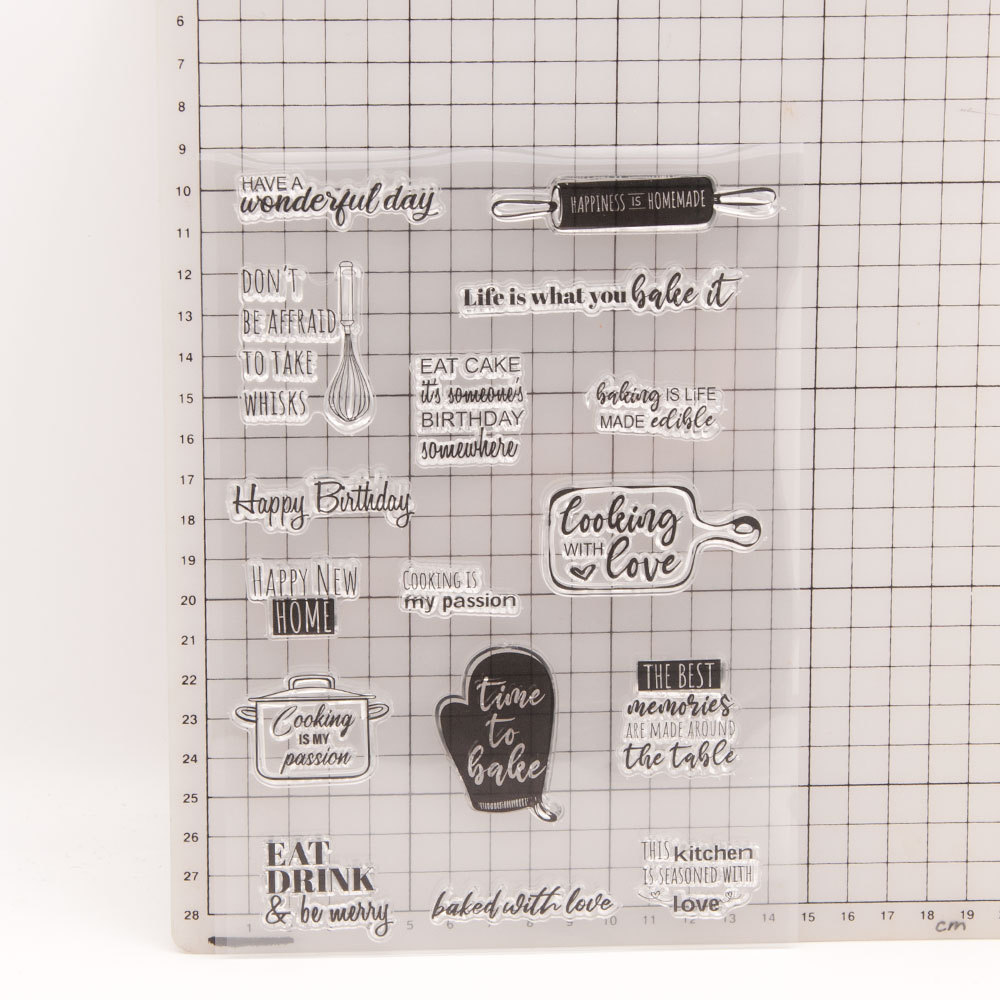 6
7
8
9
10
11
12
13
14
15
16
17
18
19
20
21
22
23
24
25
26
27
28
HAVE A
wonderful day
HAPPINESS IS HOMEMADE
DON'T
BE AFFRAID
TO TAKE
WHISKS
Life is what you bake it
EAT CAKE
it's someone's
BIRTHDAY
somewhere
baking IS LIFE
MADE edible
Happy Birthday
Cooking
WITH
love
HAPPY NEW
HOME
COOKING IS
my passion
Cooking
IS MY
passion
time
to
bake
THE BEST
memories
ARE MADE AROUND
the table
EAT
DRINK
& be merry
baked with love
THIS kitchen
IS SEASONED WITH
love
1 5 6 7 8 9 10 11 12 13 14 15 16 17 18 19
cm